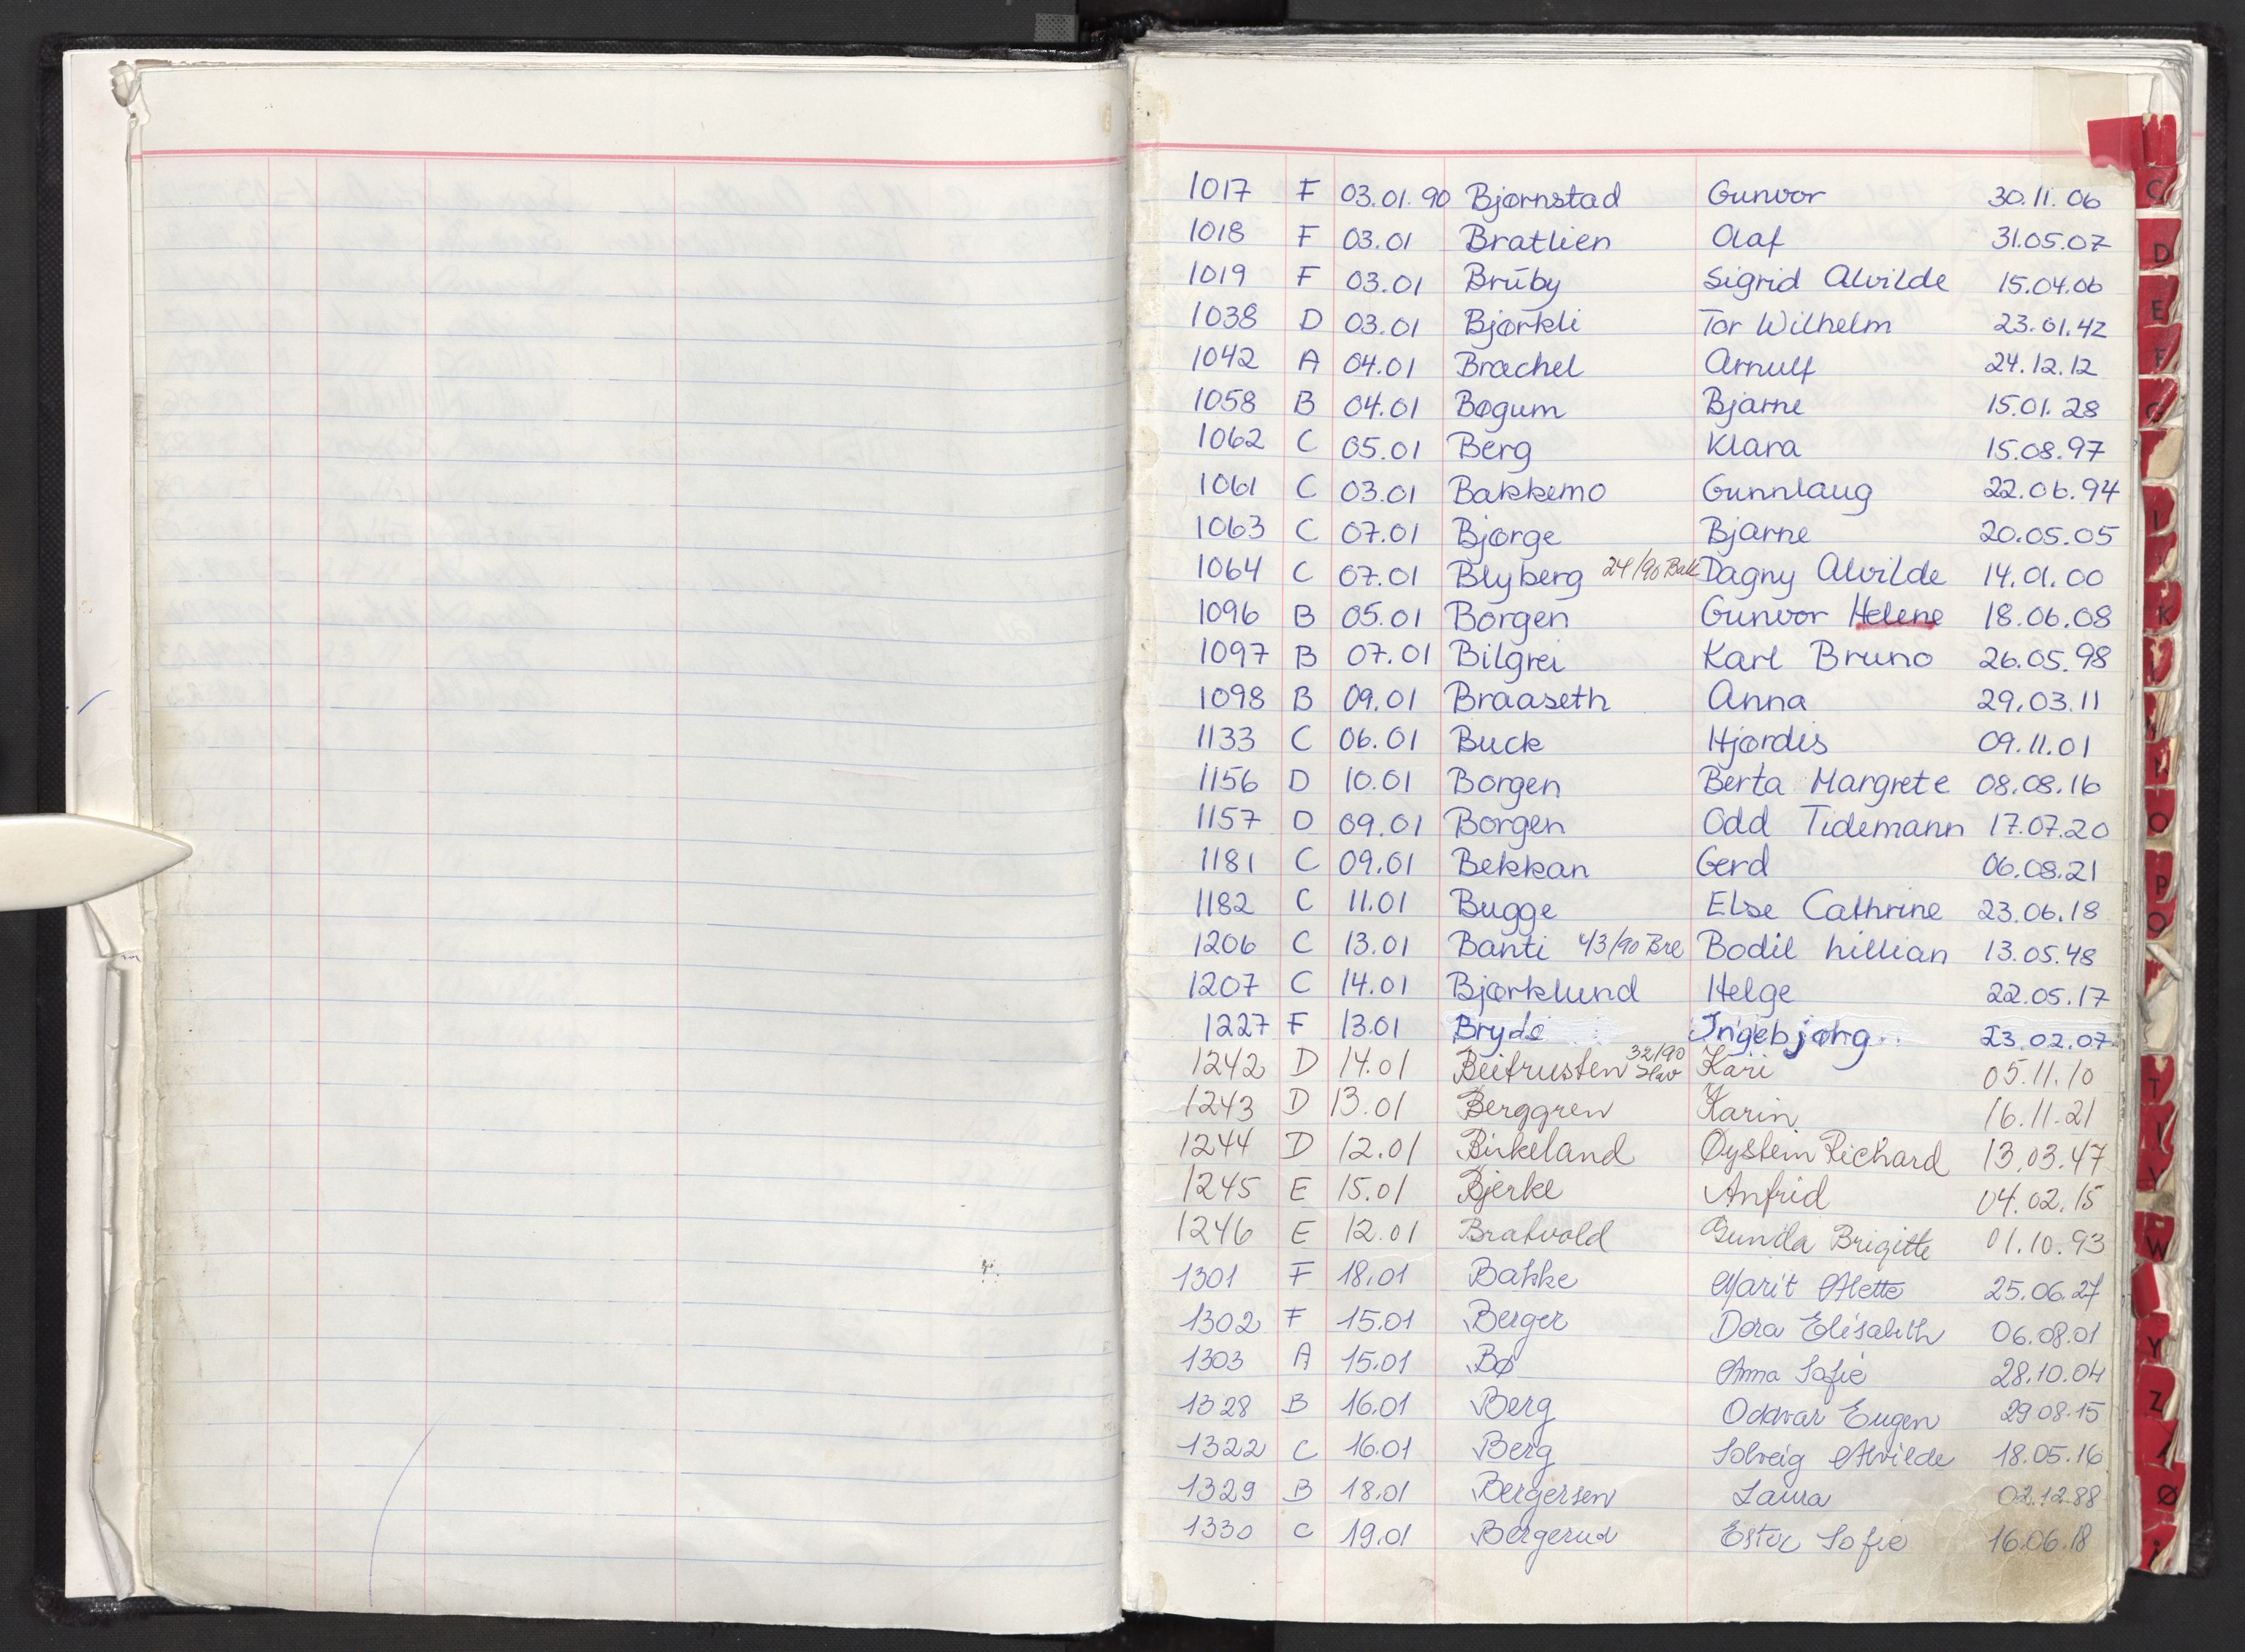 1017 F 03.01.90 Bjørnstad Gunvor 30.11.06
1018 F 03.01 Bratlien Olaf 31.05.07
1019 F 03.01 Brūby Sigrid Alvilde 15.04.06
1038 D 03.01 Bjørkli Tor Wilhelm 23.01.42
1042 A 04.01 Brachel Arnulf 24.12.12
1058 B 04.01 Bøgum Bjarne 15.01.28
1062 C 05.01 Berg Klara 15.08.97
1061 C 03.01 Bakkemo Gunnlaug 22.06.94
1063 C 07.01 Bjørge Bjarne 20.05.05
1064 C 07.01 Blyberg 24/90 Bak Dagny Alvilde 14.01.00
1096 B 05.01 Borgen Gunvor Helene 18.06.08
1097 B 07.01 Bilgrei Karl Bruno 26.05.98
1098 B 09.01 Braaseth Anna 29.03.11
1133 C 06.01 Buck Hjørdis 09.11.01
1156 D 10.01 Borgen Berta Margrete 08.08.16
1157 D 09.01 Borgen Odd Tidemann 17.07.20
1181 C 09.01 Bekkan Gerd 06.08.21
1182 C 11.01 Bugge Else Cathrine 23.06.18
1206 C 13.01 Banti 43/90 Bre Bodil Lillian 13.05.48
1207 C 14.01 Bjørklund Helge 22.05.17
1227 F 13.01 Bryde Ingebjørg 23.02.07
1242 D 14.01 Beitrusten 32/90 Kari 05.11.10
1243 D 13.01 Berggren Karin 16.11.21
1244 D 12.01 Birkeland Øystein Richard 13.03.47
1245 E 15.01 Bjerke Anfrid 04.02.15
1246 E 12.01 Bratvold Gunda Brigitte 01.10.93
1301 F 18.01 Bakke Marit Alette 25.06.27
1302 F 15.01 Berger Dora Elisabeth 06.08.01
1303 A 15.01 Bø Anna Sofie 28.10.04
1328 B 16.01 Berg Oddvar Eugen 29.08.15
1322 C 16.01 Berg Solveig Alvilde 18.05.16
1329 B 18.01 Bergersen Laura 02.12.88
1330 C 19.01 Bergerud Ester Sofie 16.06.18
C
D
E
F
G
I
K
L
N
O
P
Q
T
V
W
Y
Z
Ø